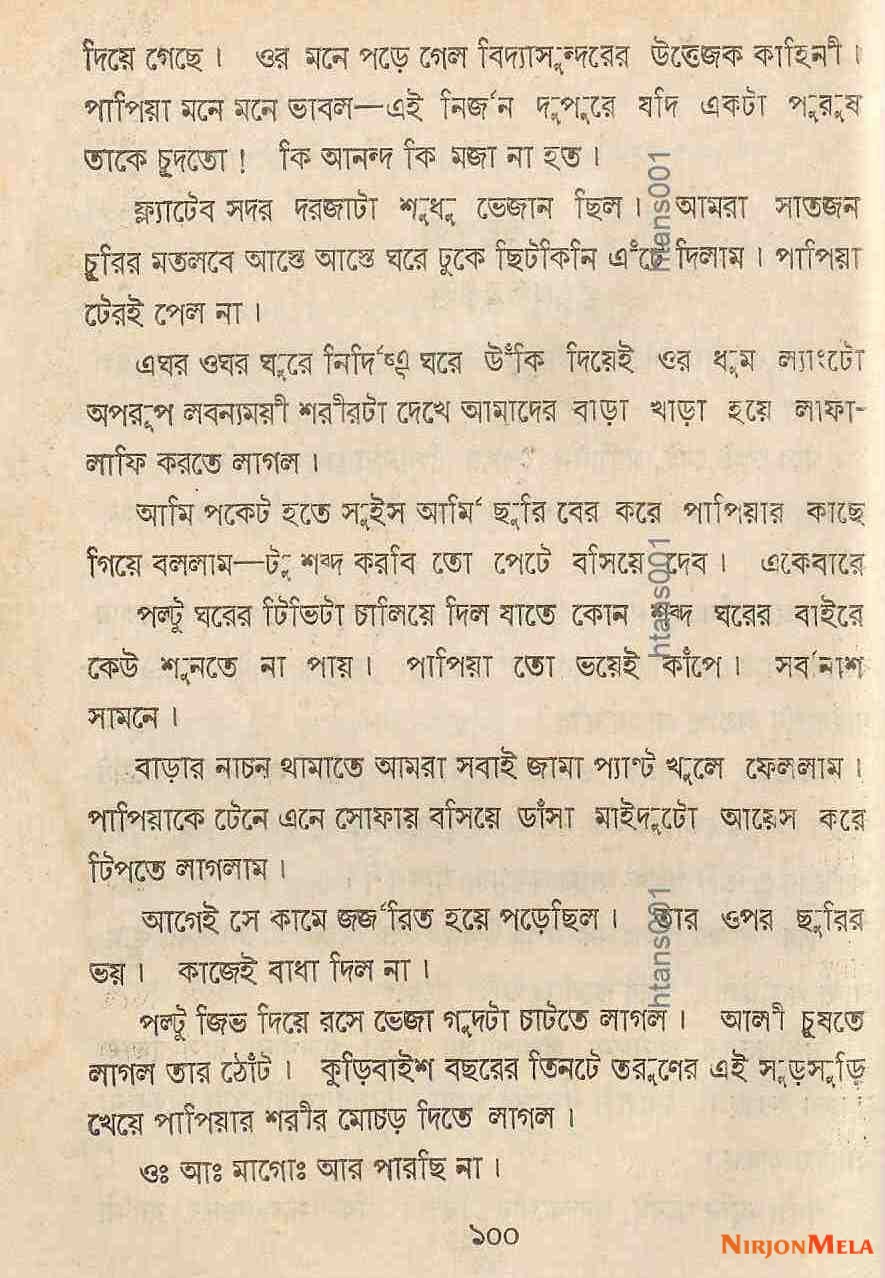 দিয়ে গেছে। ওর মনে পড়ে গেল বিদ্যাসুন্দরের উত্তেজক কাহিনী।
পাপিয়া মনে মনে ভাবল—এই নির্জন দুপুরে যদি একটা পুরুষ
তাকে চুদতো! কি আনন্দ কি মজা না হত।
ফ্ল্যাটেব সদর দরজাটা শুধু ভেজান ছিল। আমরা সাতজন
চুরির মতলবে আস্তে আস্তে ঘরে ঢুকে ছিটকিনি এঁটে দিলাম। পাপিয়া
টেরই পেল না।
এঘর ওঘর ঘুরে নির্দিষ্ট ঘরে উঁকি দিয়েই ওর ধুম ল্যাংটো
অপরূপ লবন্যময়ী শরীরটা দেখে আমাদের বাড়া খাড়া হয়ে লাফা-
লাফি করতে লাগল।
আমি পকেট হতে সুইস আর্মি ছুরি বের করে পাপিয়ার কাছে
গিয়ে বললাম—টু শব্দ করবি তো পেটে বসিয়ে দেব। একেবারে
পল্টু ঘরের টিভিটা চালিয়ে দিল যাতে কোন শব্দ ঘরের বাইরে
কেউ শুনতে না পায়। পাপিয়া তো ভয়েই কাঁপে। সর্বনাশ
সামনে।
বাড়ার নাচন থামাতে আমরা সবাই জামা প্যাণ্ট খুলে ফেললাম।
পাপিয়াকে টেনে এনে সোফায় বসিয়ে ডাঁসা মাইদুটো আয়েস করে
টিপতে লাগলাম।
আগেই সে কামে জর্জরিত হয়ে পড়েছিল। তার ওপর ছুরির
ভয়। কাজেই বাধা দিল না।
পল্টু জিভ দিয়ে রসে ভেজা গুদটা চাটতে লাগল। আলী চুষতে
লাগল তার ঠোঁট। কুড়িবাইশ বছরের তিনটে তরুণের এই সুড়সুড়ি
খেয়ে পাপিয়ার শরীর মোচড় দিতে লাগল।
ওঃ আঃ মাগোঃ আর পারছি না।
১০০
htans001
htans001
htans001
NIRJONMELA